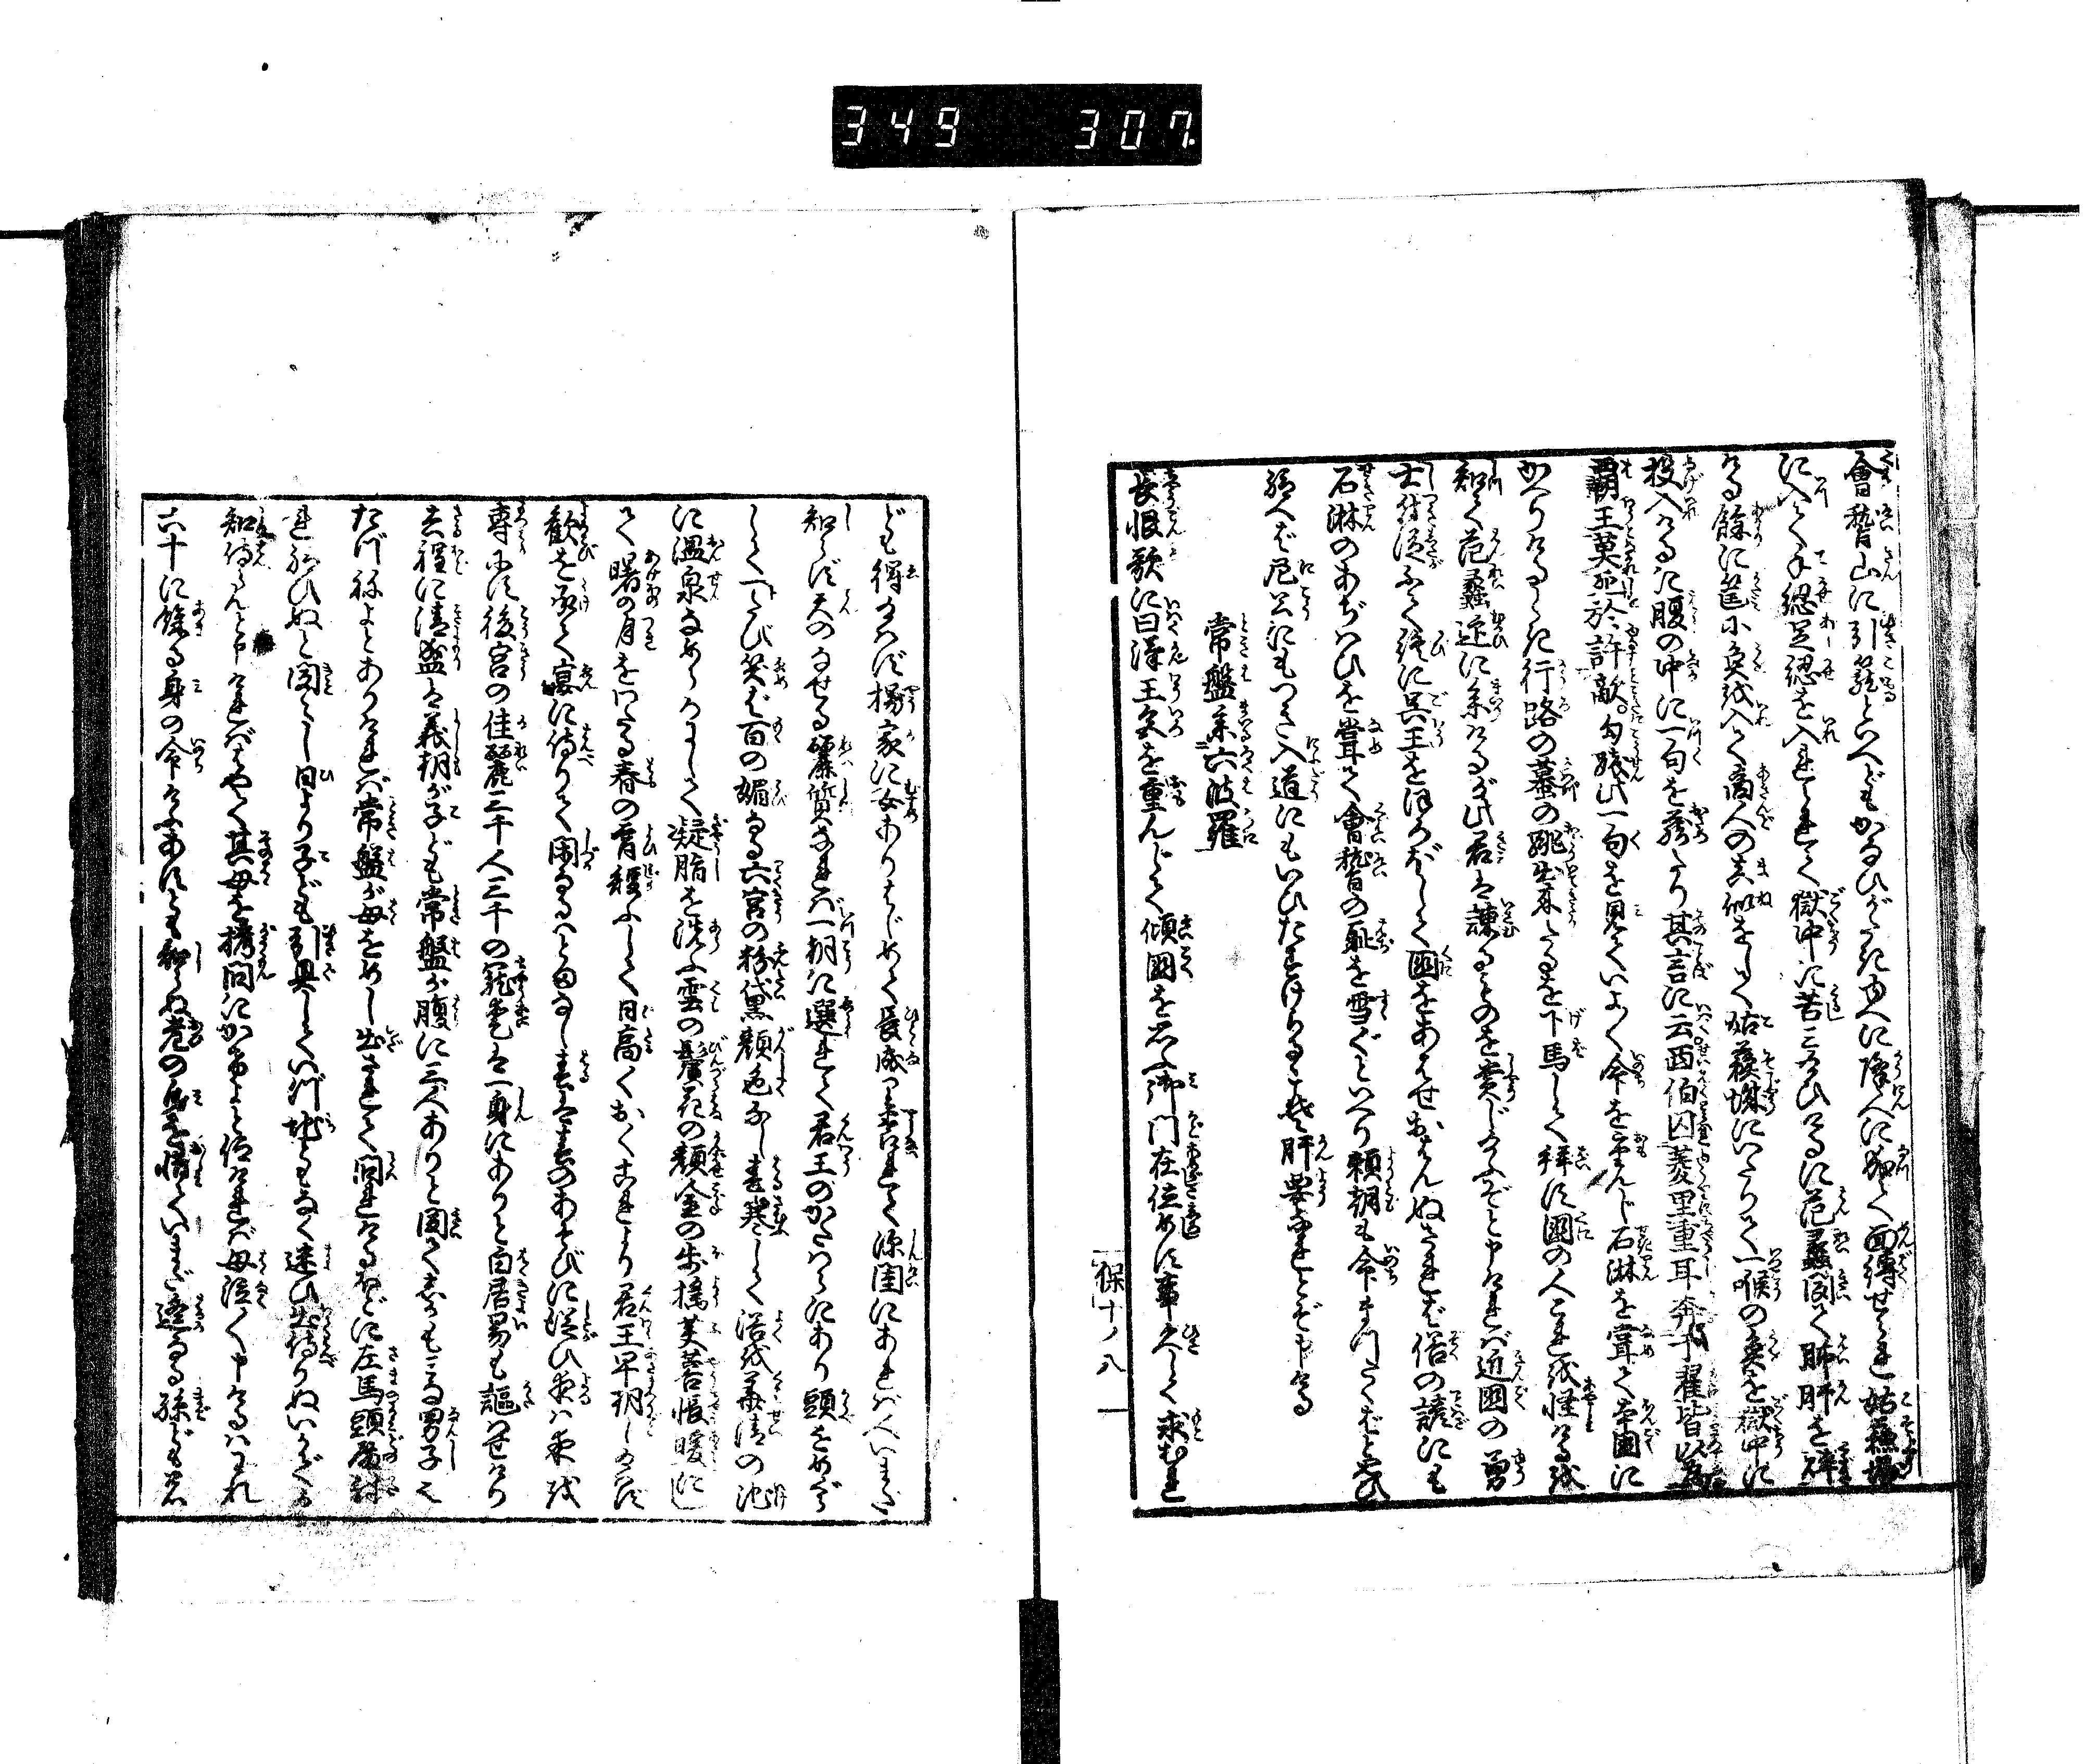 349 307
會稽山に引籠といへどもかなひがたき由へに降人に出て面縛せられ姑蘓城
に入て手綑足綑を入られて獄中に苦み給ひけるに范蠡聞て肺肝を碎
ける餘に簣に魚を入て商人の真似をして姑蘓城にいたりて一喉の魚を獄中に
投入けるに腹の中に一句を藏めたり其言に云西伯囚羑里重耳奔于翟皆以為
覇王莫死於許敵。勾践此一句を見ていよ〳〵命を重んじ石淋を甞て本國に
かへりけるとき行路の蟇の跳出来たるを下馬して拝す國の人これを怪けるを
知て范蠡迎に来けるが此君は諫るものを賞じ給ふぞと申ければ近國の勇
士付從ふて終に呉王をほろぼして國をあはせおはんぬされば俗の諺にも
石淋のあぢはひを甞て會稽の恥を雪ぐといへり頼朝も命まつたくばと思ひ
給へば尼公にもつき入道にもいひたすけらるこそ肝要なれとぞ申ける
常盤糸六波羅
長恨歌に曰漢王色を重んじて傾國を思ふ御門在位あまた年久しく求れ
保十ノ八
ども得給はず楊家に女ありはじめて長成て養はれて深閨にあれば人いまだ
知らず天のなせる麗質なれば一朝に選れて君王のかたはらにあり頭をめぐら
して一たび笑ば百の媚なる六宮の粉黛顔色なし春寒して浴を華清の池
に温泉なめらかにして凝脂を洗ふ雲の鬢花の顔金の歩揺芙蓉帳暖に
て曙の月をわたる春の宵短ふして日高くおくこれより君王早朝し給はず
歓を承て宴に侍りて閑なるいとまなし春は春のあそびに從ひ夜は夜を
専にす後宮の佳麗三千人三千の寵愛は一身にありと白居易も謳はせけり
去程に清盛は義朝が子ども常盤が腹に三人ありと聞て志かもみな男子也
たづねよとありければ常盤が母をめし出されて問れけるほどに左馬頭殿討
れ給ひぬと聞えし日より子ども引具していづ地ともなく迷ひ出侍りぬいかでか
知侍らんと申ければはやく其母を拷問にかけよと仰ければ母泣〳〵申けるはわれ
六十に餘る身の命けふあすとも知らぬ老の身を惜ていまだ遥なる孫ども君